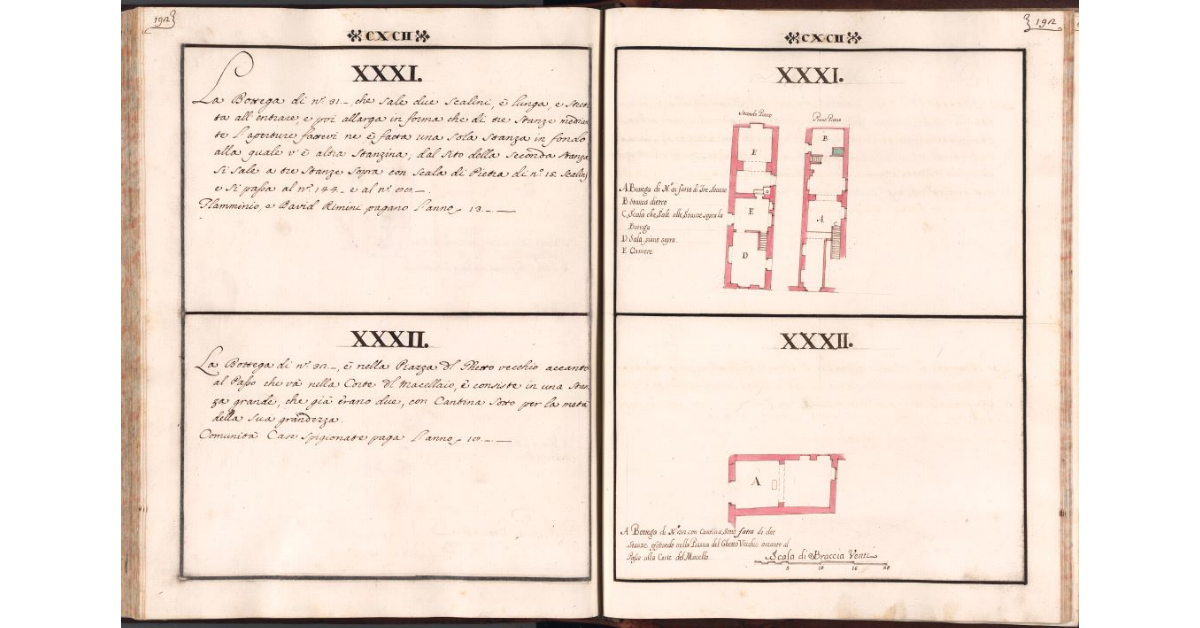 192
CXCII
XXXI.
La Bottega di nº. 31_, che Sale due Scalini, è lunga, e Stret
ta all'entrare, e poi allarga in forma che di tre Stanze median
te l'aperture fattevi ne è fatta una Sola Stanza in fondo
alla quale v'è altra Stanzina, dal Sito della Seconda Stanza
Si Sale a tre Stanze Sopra con Scala di Pietra di nº. 18. Scalin
e Si passa al nº. 144. e al nº.
Flamminio, e David Rimini pagano l'anno_ 13._
XXXII.
La Bottega di nº. 32_, è nella Piazza dl Ghetto vecchio accanto
al Passo che và nella Corte dl Macellaio, è consiste in una Stan
za grande, che già erano due, con Cantina Sotto per la metà
della Sua grandezza.
Comunità Case Spigionate paga l'anno_ 10._
192
CXCII
XXXI.
Secondo Piano
Primo Piano
E
B
E
A
C
D
A Bottega di Nº 31 fatta di Tre Stanze
B Stanza dietro
C Scala che Sale alle Stanze sopra la
Bottega
D Sala, pure sopra
E Camere
XXXII.
A
A Bottega di Nº 32 con Cantina Sotto fatta di due
Stanze, risponde nella Piazza del Ghetto Vecchio accanto al
Passo alla Corte del Macello.
Scala di Braccia Venti
5 10 15 20